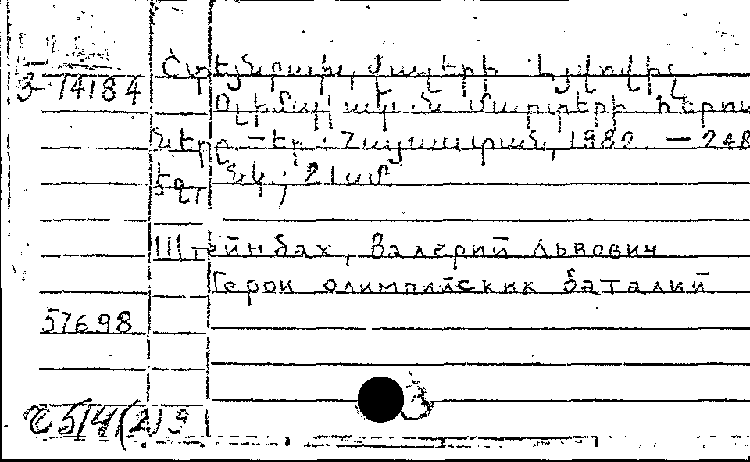 Շտեյնբախ, Վալերի Լվովիչ
3-14184
Օլիմպիական մարտերի հերոս-
ները.–Եր.: Հայաստան, 1980. – 248
էջ, նկ.; 21սմ
Штейнбах, Валерий Львович
Герои олимпийских баталий
57698
514(2)9
3